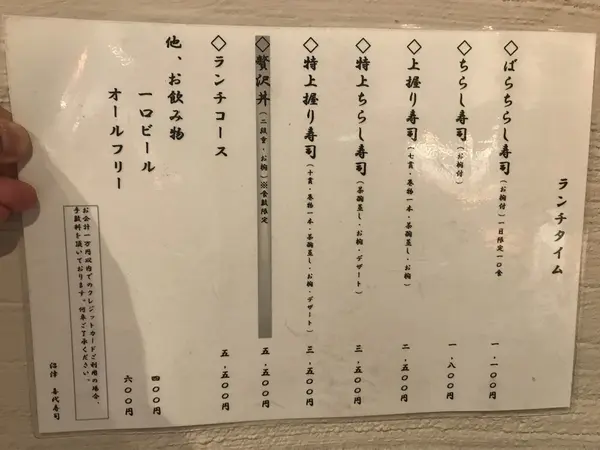 ランチタイム
◇ばらちらし寿司(お椀付)一日限定一〇食 一、一〇〇円
◇ちらし寿司(お椀付) 一、八〇〇円
◇上握り寿司(七貫・巻物一本・お椀) 二、五〇〇円
◇特上ちらし寿司(茶碗蒸し・お椀・デザート) 三、五〇〇円
◇特上握り寿司(十貫・巻物一本・茶碗蒸し・お椀・デザート) 三、五〇〇円
◇贅沢丼(二段重・お椀)※食数限定 五、五〇〇円
◇ランチコース 五、五〇〇円
他、お飲み物
一口ビール 四〇〇円
オールフリー 六〇〇円
お会計一万円以内でのクレジットカードご利用の場合、
手数料を頂いております。何卒ご了承ください。
沼津 喜代寿司